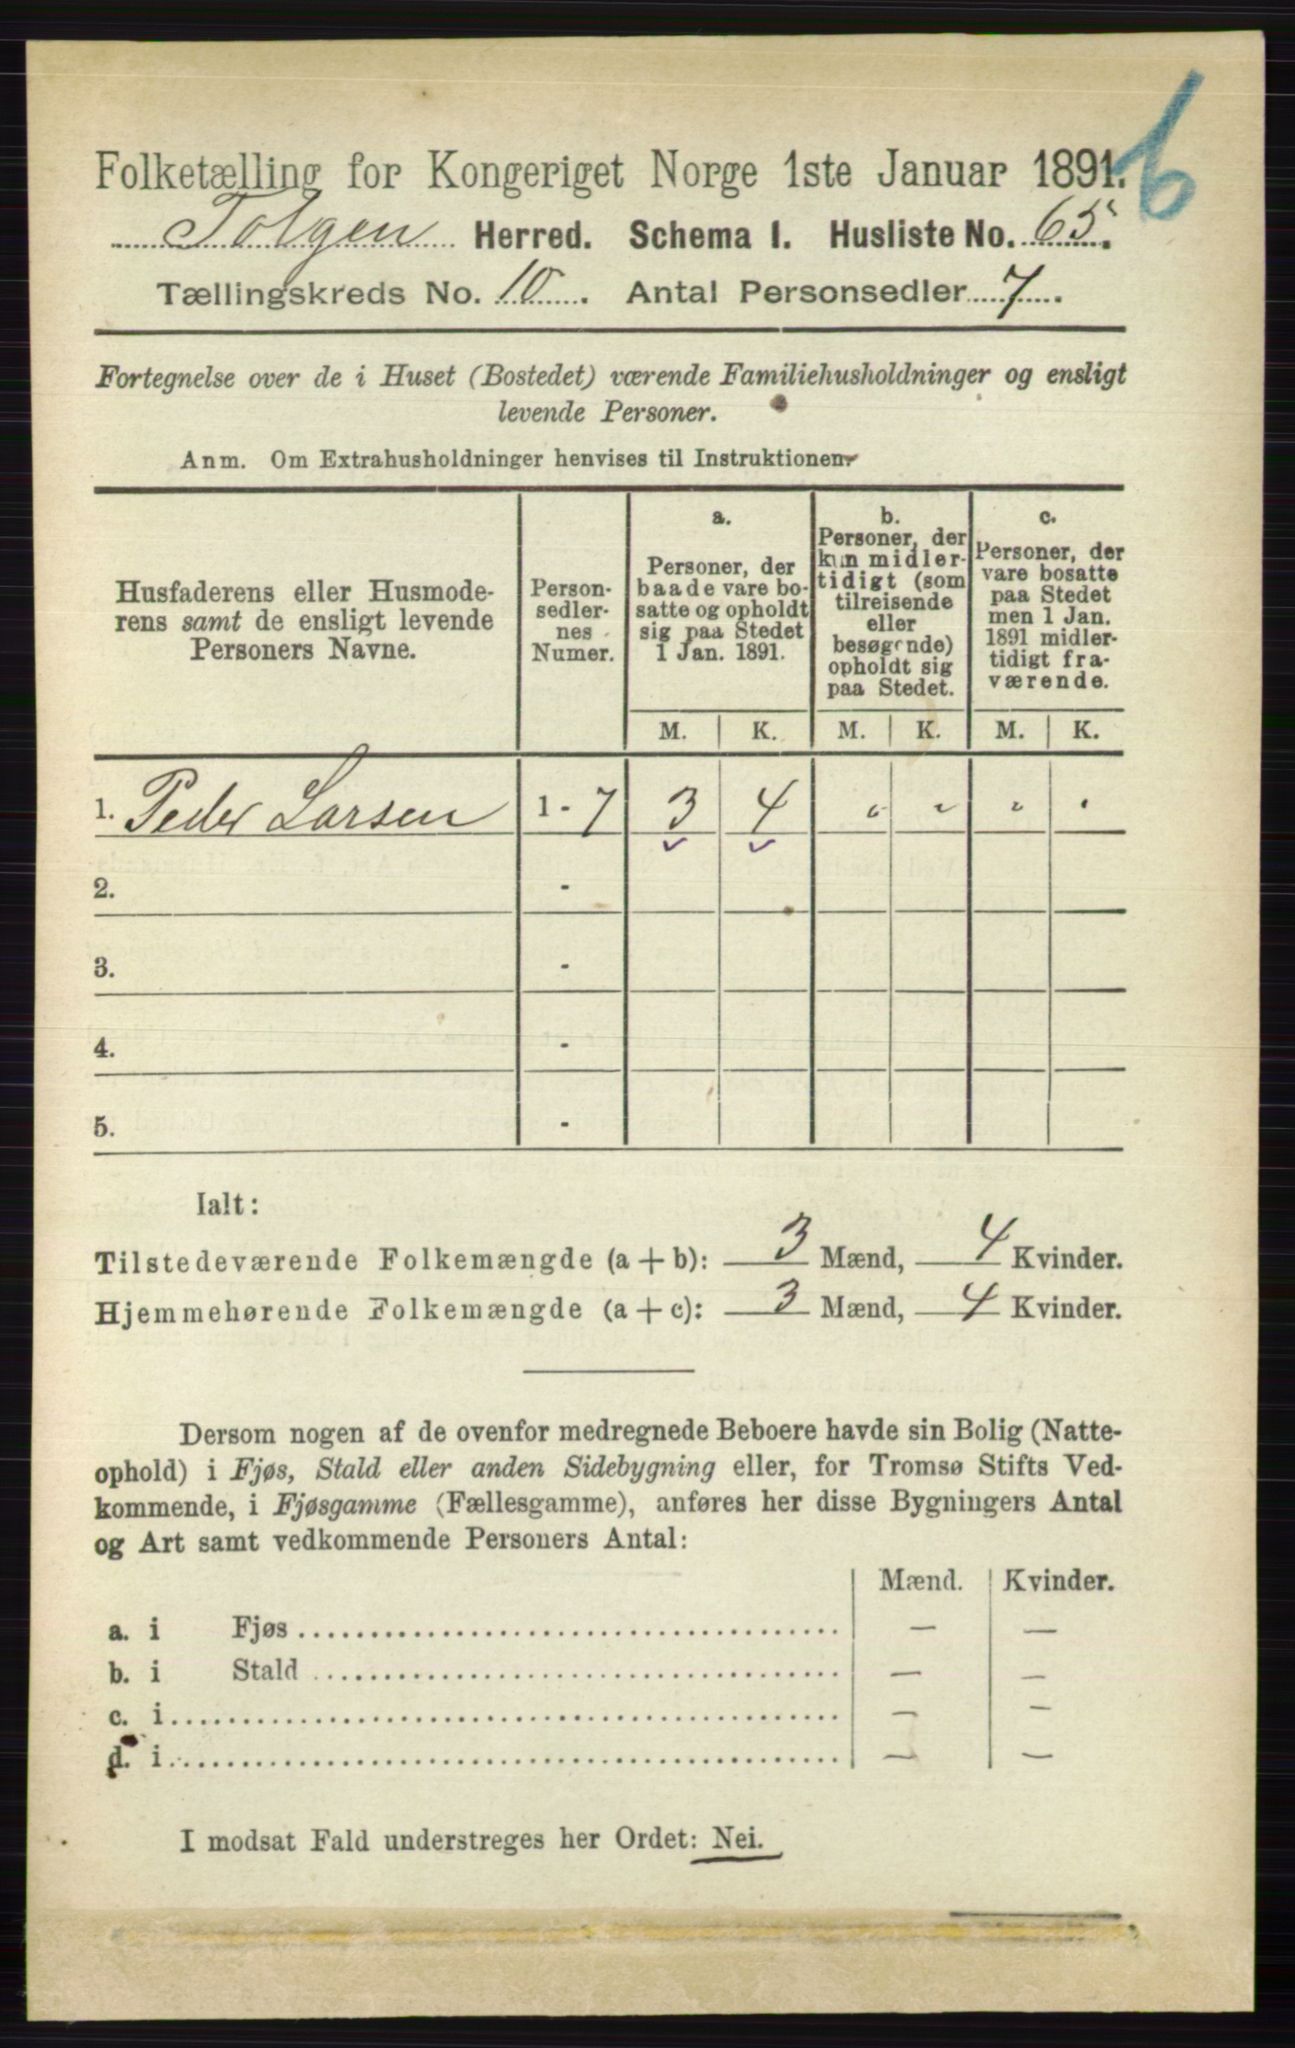 6
Folketælling for Kongeriget Norge 1ste Januar 1891.
Tolgen Herred. Schema I. Husliste No. 65.
Tællingskreds No. 10. Antal Personsedler 7.
Fortegnelse over de i Huset (Bostedet) værende Familiehusholdninger og ensligt
levende Personer.
Anm. Om Extrahusholdninger henvises til Instruktionen.
Husfaderens eller Husmode-
rens samt de ensligt levende
Personers Navne.
Person-
sedler-
nes
Numer.
a.
Personer, der
baade vare bo-
satte og opholdt
sig paa Stedet
1 Jan. 1891.
b.
Personer, der
kun midler-
tidigt (som
tilreisende
eller
besøgende)
opholdt sig
paa Stedet.
c.
Personer, der
vare bosatte
paa Stedet
men 1 Jan.
1891 midler-
tidigt fra-
værende.
M. K. M. K. M. K.
1. Peder Larsen 1 - 7 3 4 " " " "
2. -
3. -
4. -
5. -
Ialt:
Tilstedeværende Folkemængde (a + b): 3 Mænd, 4 Kvinder.
Hjemmehørende Folkemængde (a + c): 3 Mænd, 4 Kvinder.
Dersom nogen af de ovenfor medregnede Beboere havde sin Bolig (Natte-
ophold) i Fjøs, Stald eller anden Sidebygning eller, for Tromsø Stifts Ved-
kommende, i Fjøsgamme (Fællesgamme), anføres her disse Bygningers Antal
og Art samt vedkommende Personers Antal:
Mænd. Kvinder.
a. i Fjøs — —
b. i Stald — —
c. i — —
d. i — —
I modsat Fald understreges her Ordet: Nei.